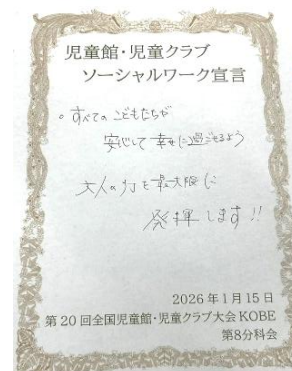 児童館・児童クラブ
ソーシャルワーク宣言
。すべてのこどもたちが
安心して幸せに過ごせるよう
大人の力を最大限に
発揮します!!
2026年1月15日
第20回全国児童館・児童クラブ大会KOBE
第8分科会